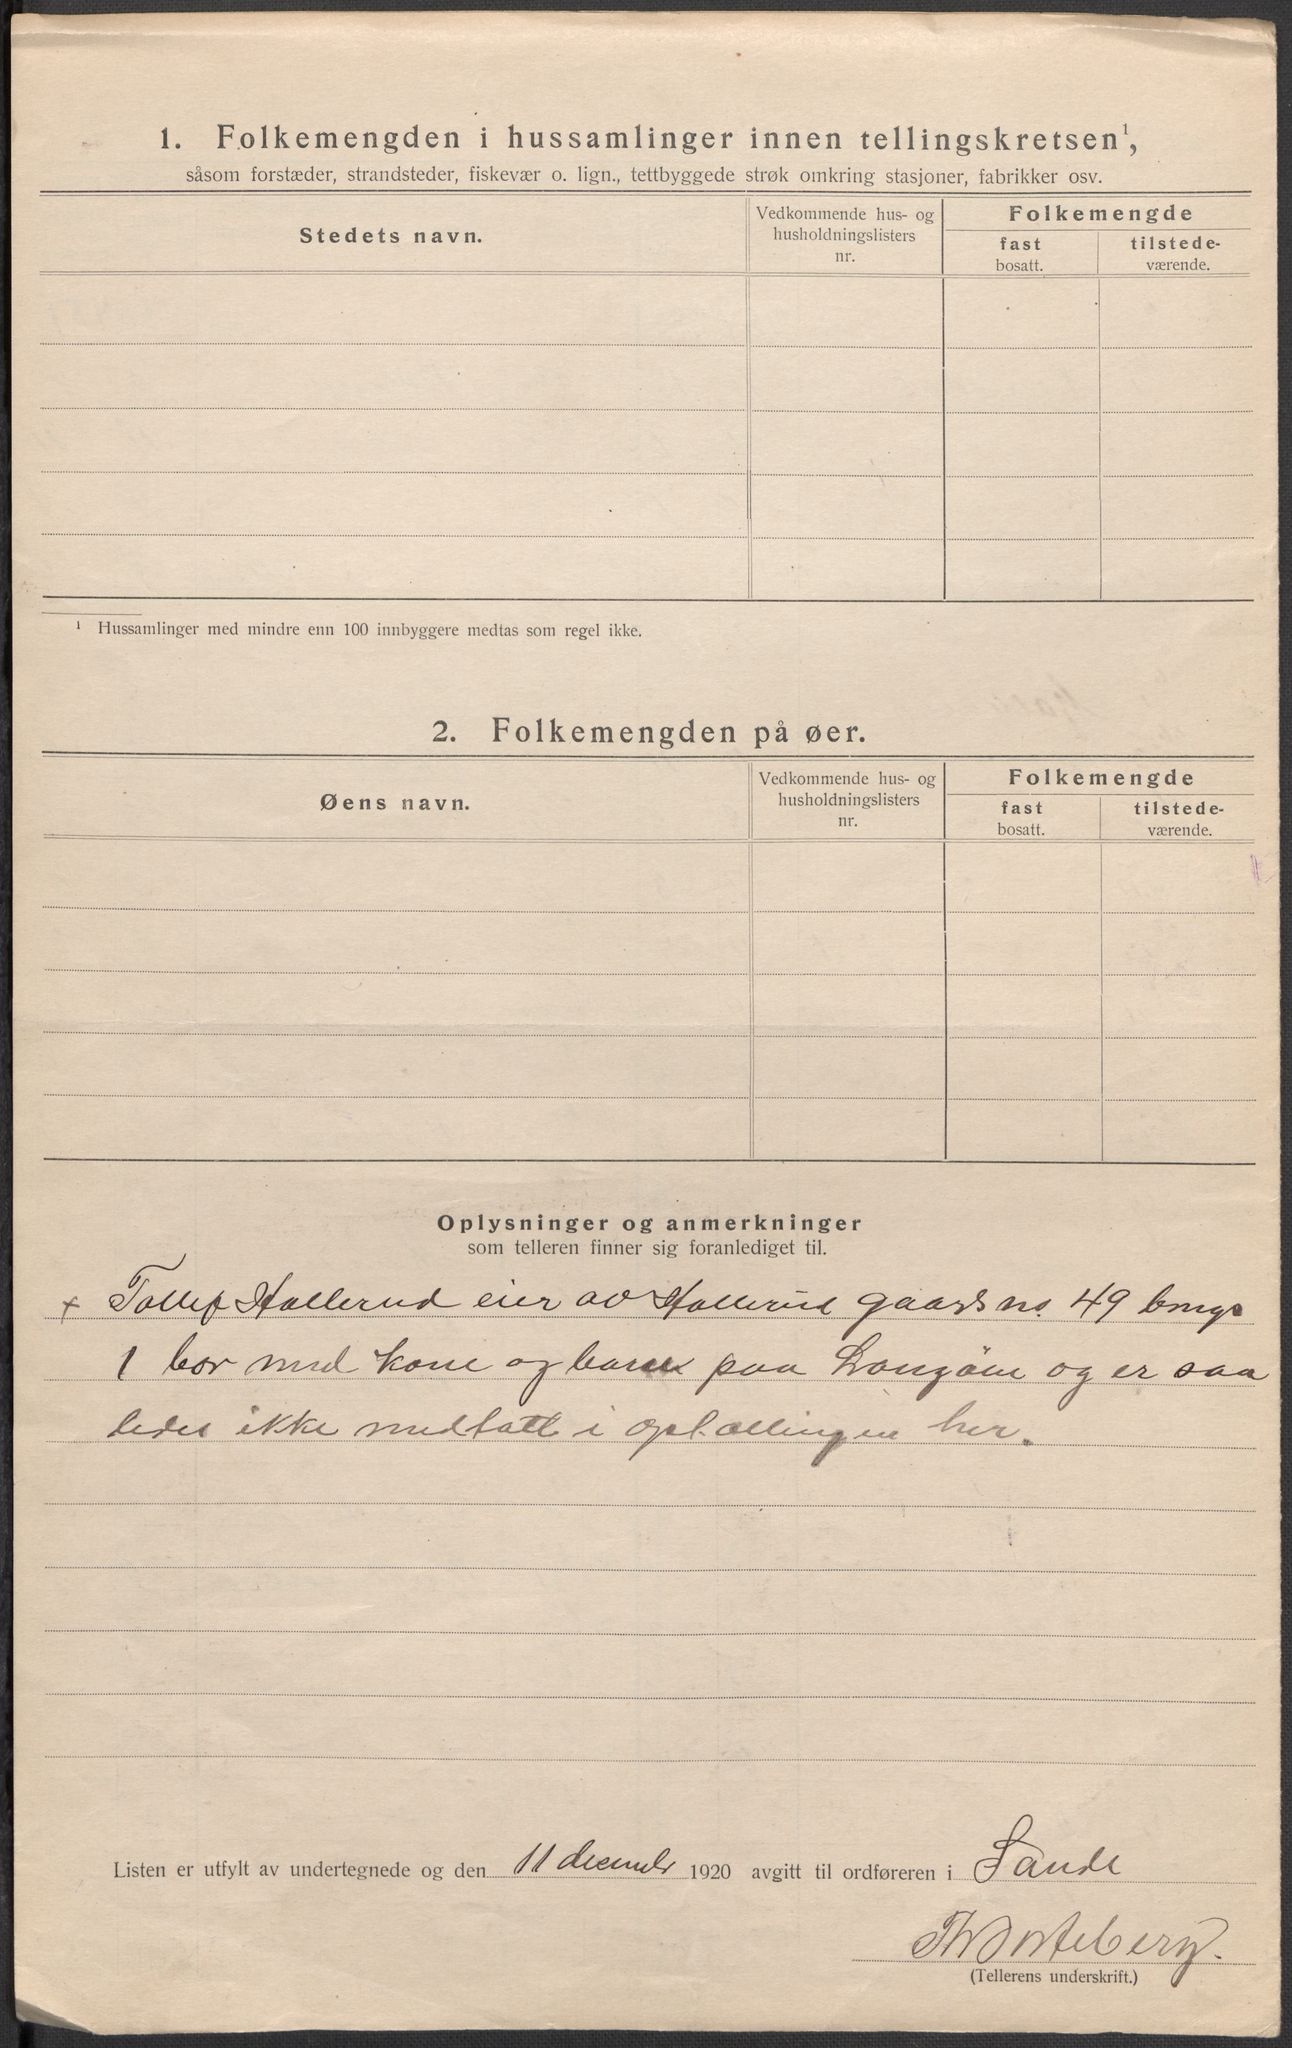 1. Folkemengden i hussamlinger innen tellingskretsen¹,
såsom forstæder, strandsteder, fiskevær o. lign., tettbyggede strøk omkring stasjoner, fabrikker osv.
Stedets navn.
Vedkommende hus- og husholdningslisters nr.
Folkemengde
fast bosatt.
tilstede-værende.
¹ Hussamlinger med mindre enn 100 innbyggere medtas som regel ikke.
2. Folkemengden på øer.
Øens navn.
Vedkommende hus- og husholdningslisters nr.
Folkemengde
fast bosatt.
tilstede-værende.
Oplysninger og anmerkninger
som telleren finner sig foranlediget til.
+ Tollef Hallerud eier av Hallerud gaards no. 49 brugs
1 bor med kone og barn paa Langöen og er saa
ledes ikke medtatt i optællingen her.
Listen er utfylt av undertegnede og den 11 decembr 1920 avgitt til ordføreren i Sande
(Tellerens underskrift.)